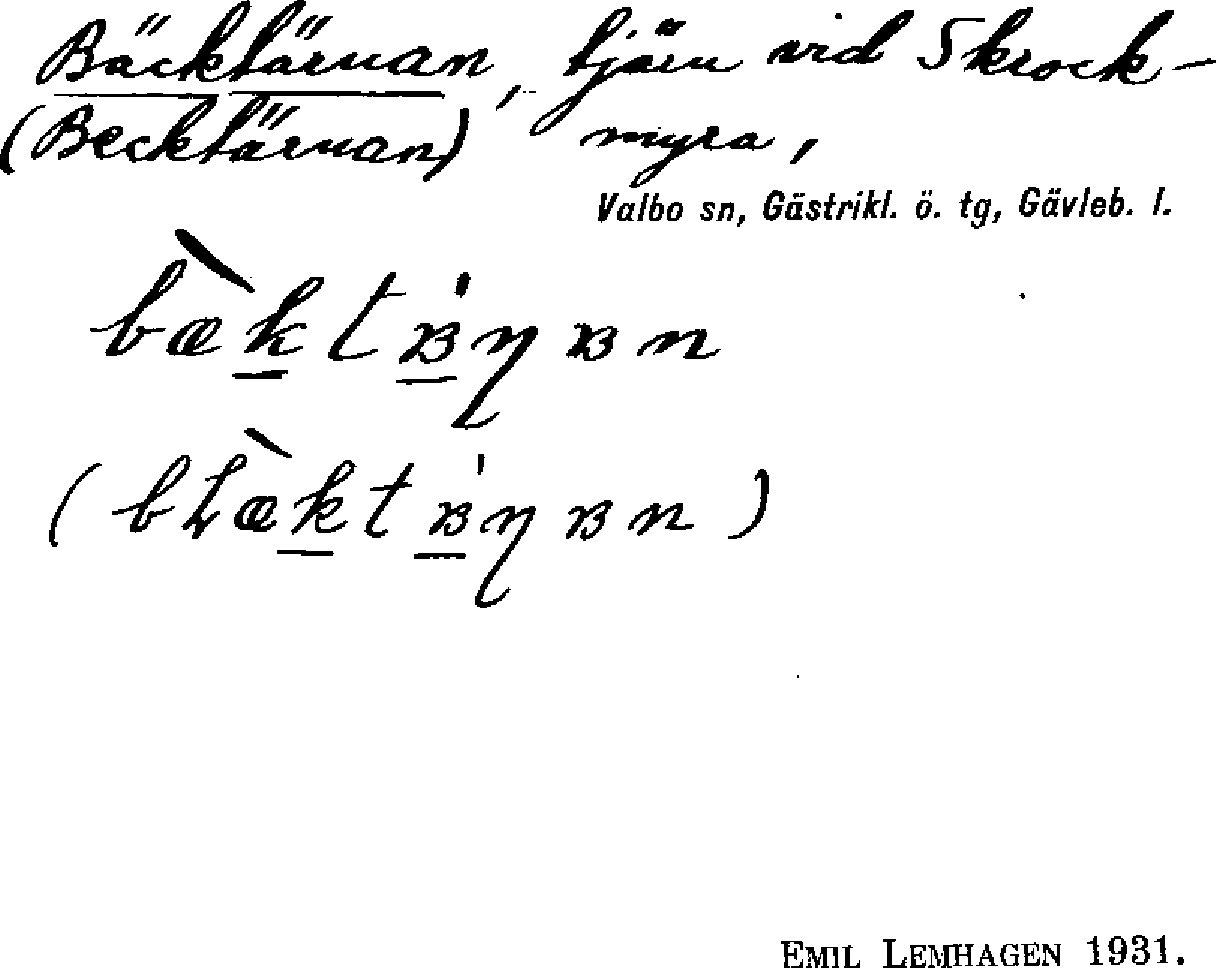 Bäcktärnan, tjärn vid Skrock-
(Becktärnan) myra,
Valbo sn, Gästrikl. ö. tg, Gävleb. l.
EMIL LEMHAGEN 1931.